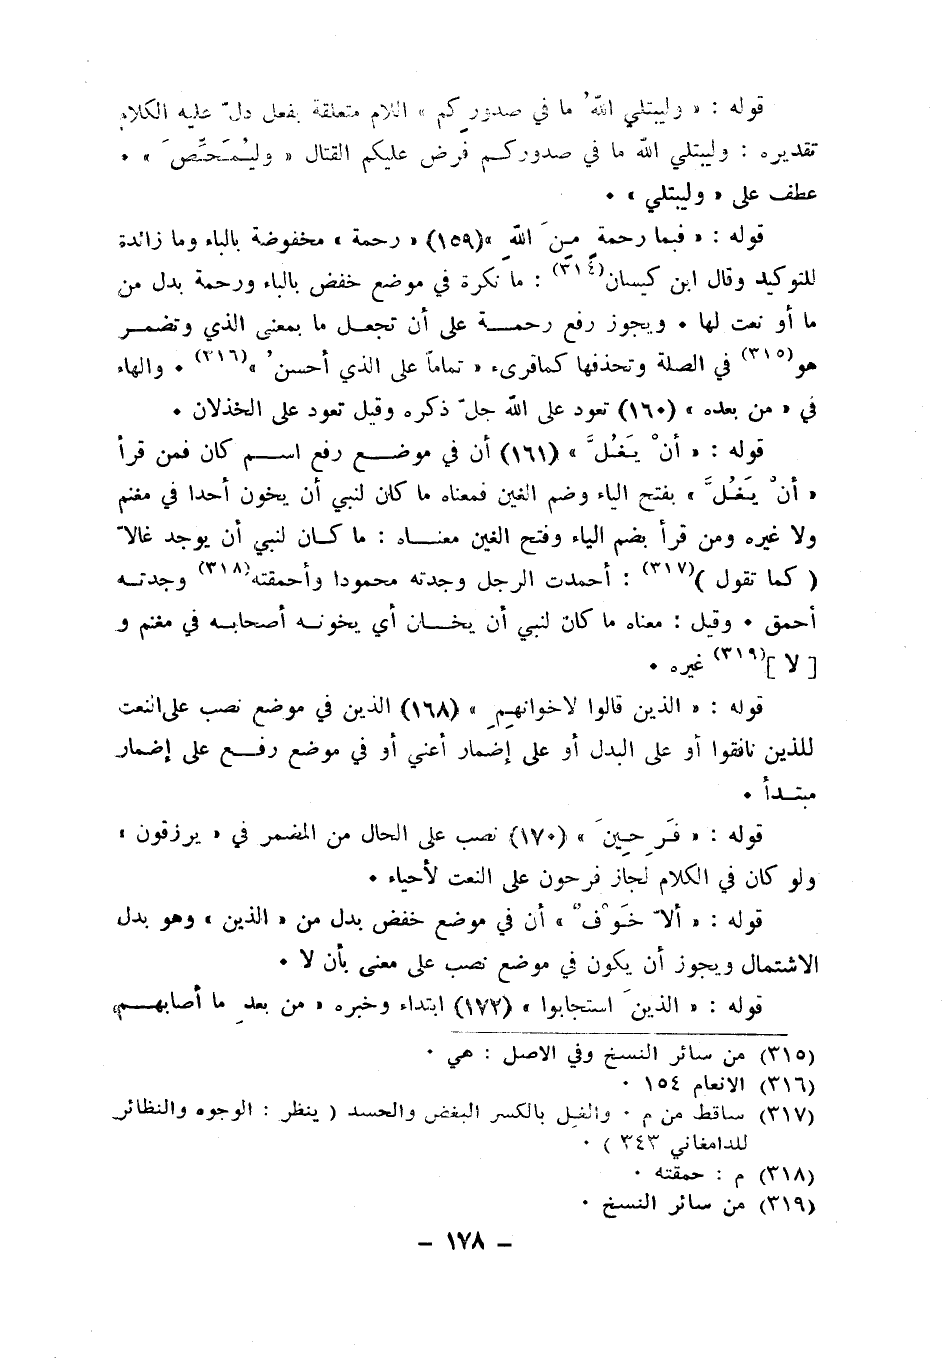 قوله : « وليبتلي اللهُ ما في صدورِكم » اللام متعلقة بفعل دلّ عليه الكلام
تقديره : وليبتلي الله ما في صدوركم فرض عليكم القتال « وليُمَحِّصَ » ٠
عطف على « وليبتلي » ٠
قوله : « فبما رحمةٍ مِنَ اللهِ »(١٥٩) « رحمة » مخفوضة بالباء وما زائدة
للتوكيد وقال ابن كيسان(٣١٤) : ما نكرة في موضع خفض بالباء ورحمة بدل من
ما أو نعت لها ٠ ويجوز رفع رحمة على أن تجعل ما بمعنى الذي وتضمر
هو(٣١٥) في الصلة وتحذفها كما قرىء « تماماً على الذي أحسنُ »(٣١٦) ٠ والهاء
في « من بعده » (١٦٠) تعود على الله جلّ ذكره وقيل تعود على الخذلان ٠
قوله : « أنْ يَغُلَّ » (١٦١) أن في موضع رفع اسم كان فمن قرأ
« أنْ يَغُلَّ » بفتح الياء وضم الغين فمعناه ما كان لنبي أن يخون أحدا في مغنم
ولا غيره ومن قرأ بضم الياء وفتح الغين معناه : ما كان لنبي أن يوجد غالاّ
( كما تقول )(٣١٧) : أحمدت الرجل وجدته محمودا وأحمقته(٣١٨) وجدته
أحمق ٠ وقيل : معناه ما كان لنبي أن يخان أي يخونه أصحابه في مغنم و
[ لا ](٣١٩) غيره ٠
قوله : « الذين قالوا لاخوانِهِمِ » (١٦٨) الذين في موضع نصب على النعت
للذين نافقوا أو على البدل أو على إضمار أعني أو في موضع رفع على إضمار
مبتدأ ٠
قوله : « فَرِحِينَ » (١٧٠) نصب على الحال من المضمر في « يرزقون »
ولو كان في الكلام لجاز فرحون على النعت لأحياء ٠
قوله : « ألاّ خَوْفٌ » أن في موضع خفض بدل من « الذين » وهو بدل
الاشتمال ويجوز أن يكون في موضع نصب على معنى بأن لا ٠
قوله : « الذينَ استجابوا » (١٧٢) ابتداء وخبره « من بعدِ ما أصابهم
(٣١٥) من سائر النسخ وفي الاصل : هي ٠
(٣١٦) الانعام ١٥٤ ٠
(٣١٧) ساقط من م ٠ والغل بالكسر البغض والحسد ( ينظر : الوجوه والنظائر
للدامغاني ٣٤٣ ) ٠
(٣١٨) م : حمقته ٠
(٣١٩) من سائر النسخ ٠
– ١٧٨ –